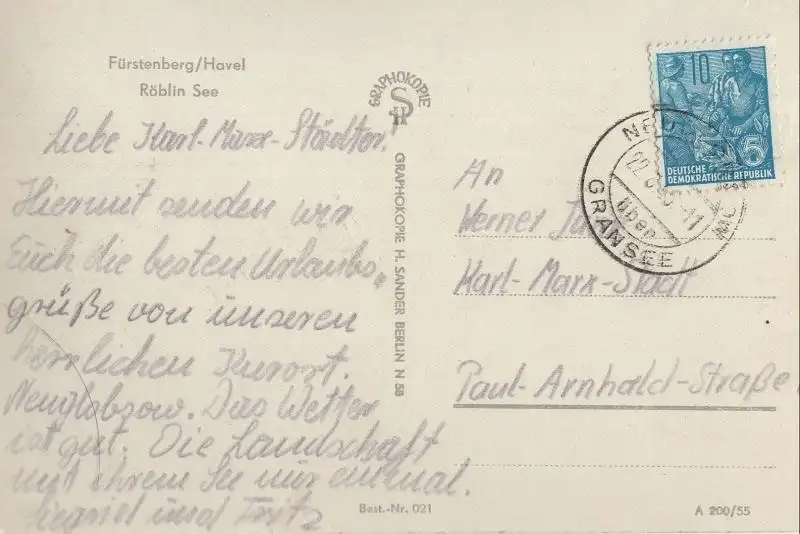 Fürstenberg/Havel
Röblin See
Liebe Karl-Marx-Städter!
Hiermit senden wir
Euch die besten Urlaubs„
grüße von unseren
herrlichen Kurort.
Neuglobsow. Das Wetter
ist gut. Die Landschaft
mit ihrem See nur einmal.
Siegried und Fritz
GRAPHOKOPIE
GRAPHOKOPIE H. SANDER BERLIN N 58
Best.-Nr. 021
10
5
DEUTSCHE
DEMOKRATISCHE REPUBLIK
über
GRANSEE
An
Werner
Karl-Marx-Stadt
Paul-Arnhald-Straße
A 200/55